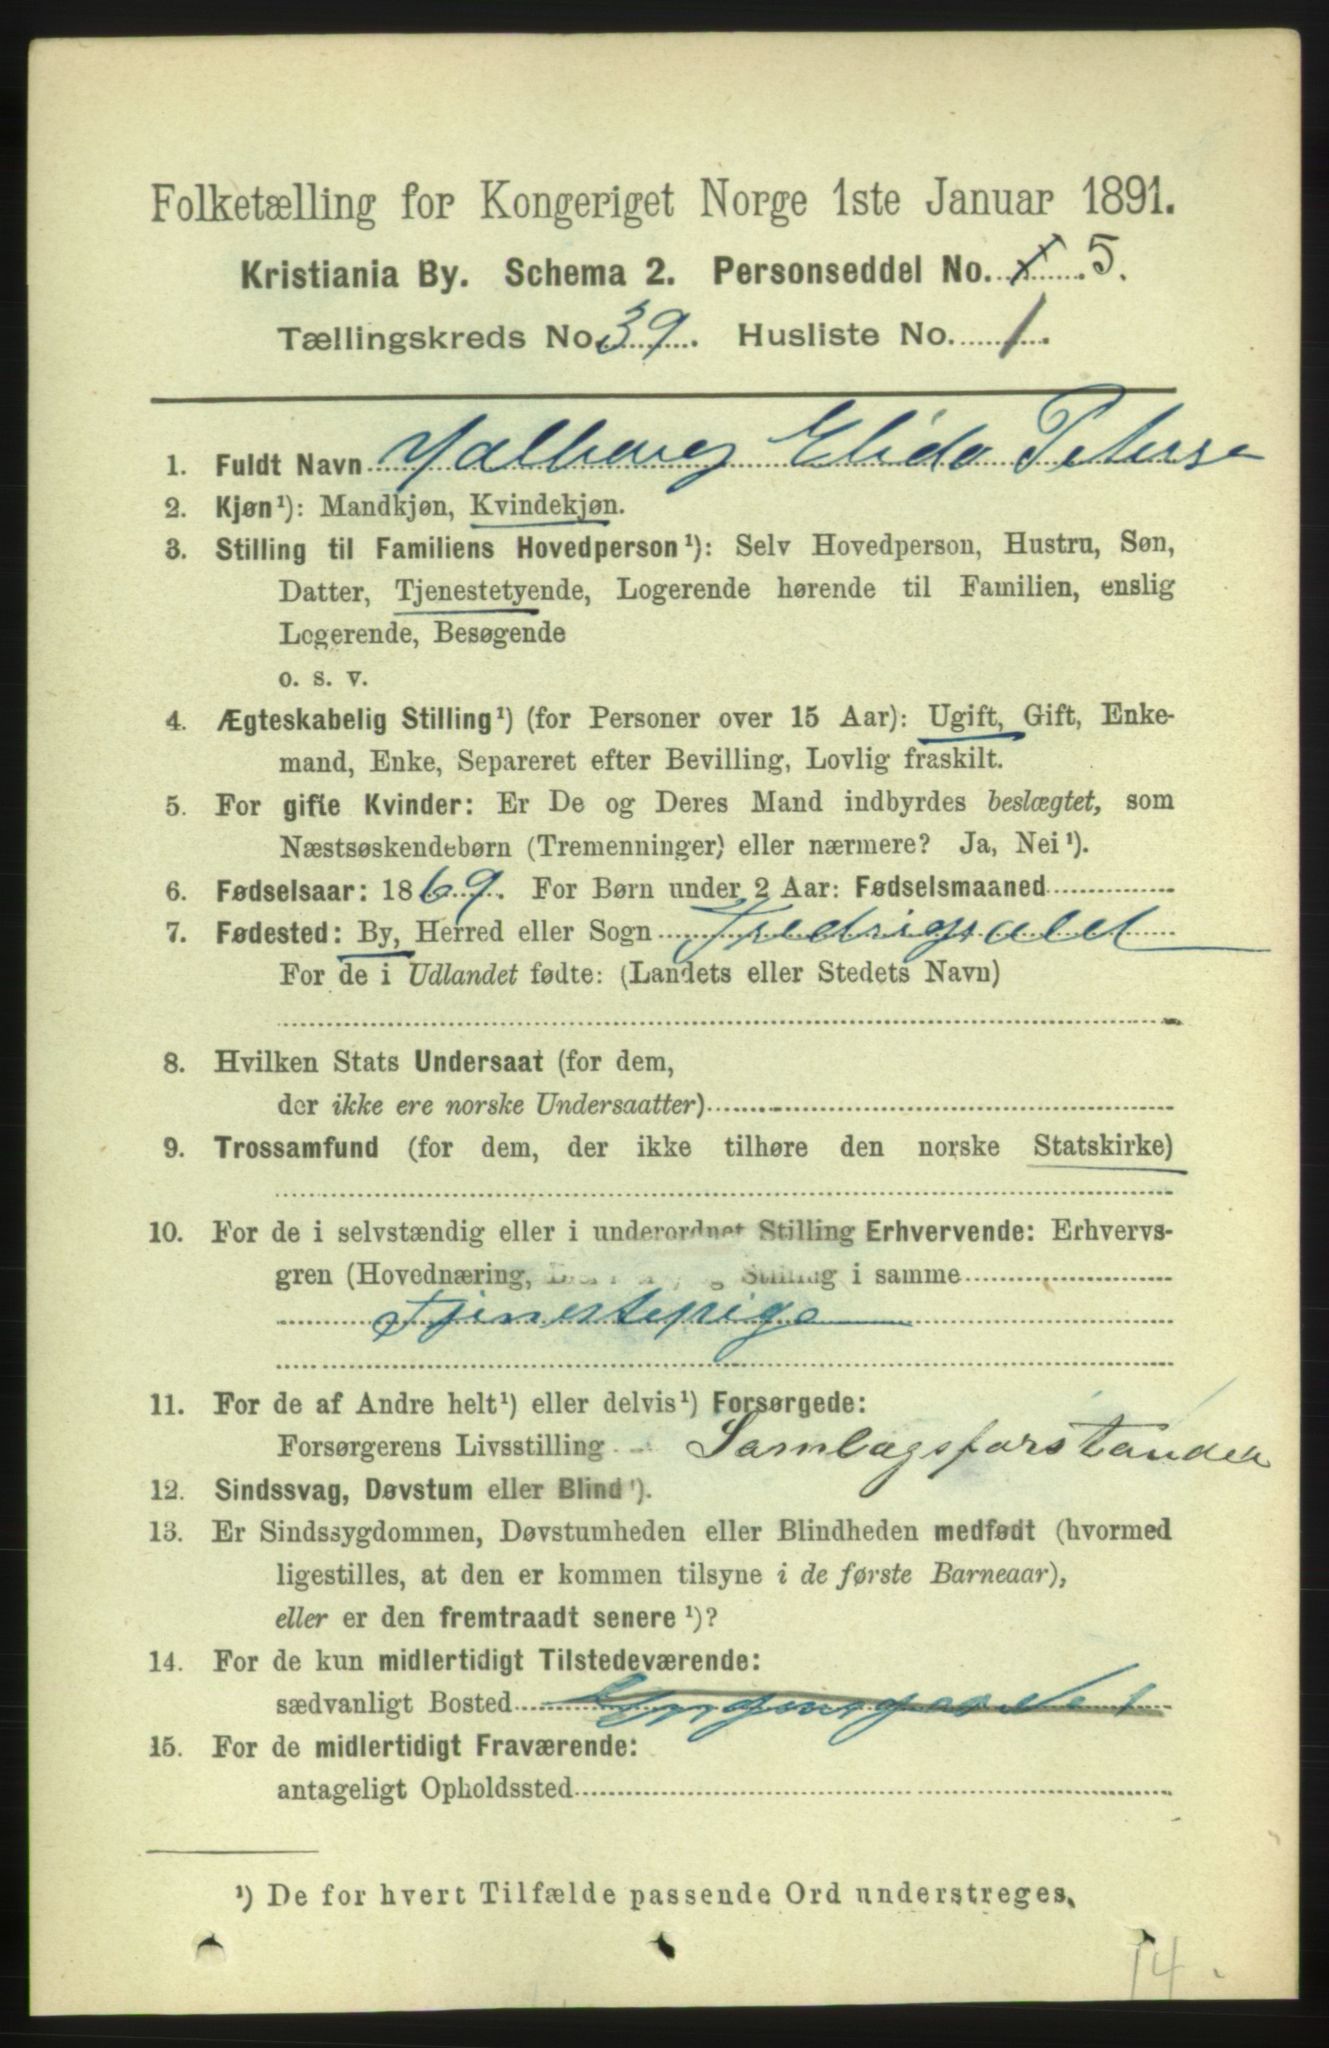 Folketælling for Kongeriget Norge 1ste Januar 1891.
Kristiania By. Schema 2. Personseddel No. 5.
Tællingskreds No. 39. Husliste No. 1.
1. Fuldt Navn Valborg Elida Peterse
2. Kjøn¹): Mandkjøn, Kvindekjøn.
3. Stilling til Familiens Hovedperson¹): Selv Hovedperson, Hustru, Søn,
Datter, Tjenestetyende, Logerende hørende til Familien, enslig
Logerende, Besøgende
o. s. v.
4. Ægteskabelig Stilling¹) (for Personer over 15 Aar): Ugift, Gift, Enke-
mand, Enke, Separeret efter Bevilling, Lovlig fraskilt.
5. For gifte Kvinder: Er De og Deres Mand indbyrdes beslægtet, som
Næstsøskendebørn (Tremenninger) eller nærmere? Ja, Nei¹).
6. Fødselsaar: 1869. For Børn under 2 Aar: Fødselsmaaned
7. Fødested: By, Herred eller Sogn Fredrigsald
For de i Udlandet fødte: (Landets eller Stedets Navn)
8. Hvilken Stats Undersaat (for dem,
der ikke ere norske Undersaatter)
9. Trossamfund (for dem, der ikke tilhøre den norske Statskirke)
10. For de i selvstændig eller i underordnet Stilling Erhvervende: Erhvervs-
gren (Hovednæring, Stilling i samme
Tjenestepige
11. For de af Andre helt¹) eller delvis¹) Forsørgede:
Forsørgerens Livsstilling Samlagsforstander
12. Sindssvag, Døvstum eller Blind¹).
13. Er Sindssygdommen, Døvstumheden eller Blindheden medfødt (hvormed
ligestilles, at den er kommen tilsyne i de første Barneaar),
eller er den fremtraadt senere¹)?
14. For de kun midlertidigt Tilstedeværende:
sædvanligt Bosted
15. For de midlertidigt Fraværende:
antageligt Opholdssted
¹) De for hvert Tilfælde passende Ord understreges.
14.